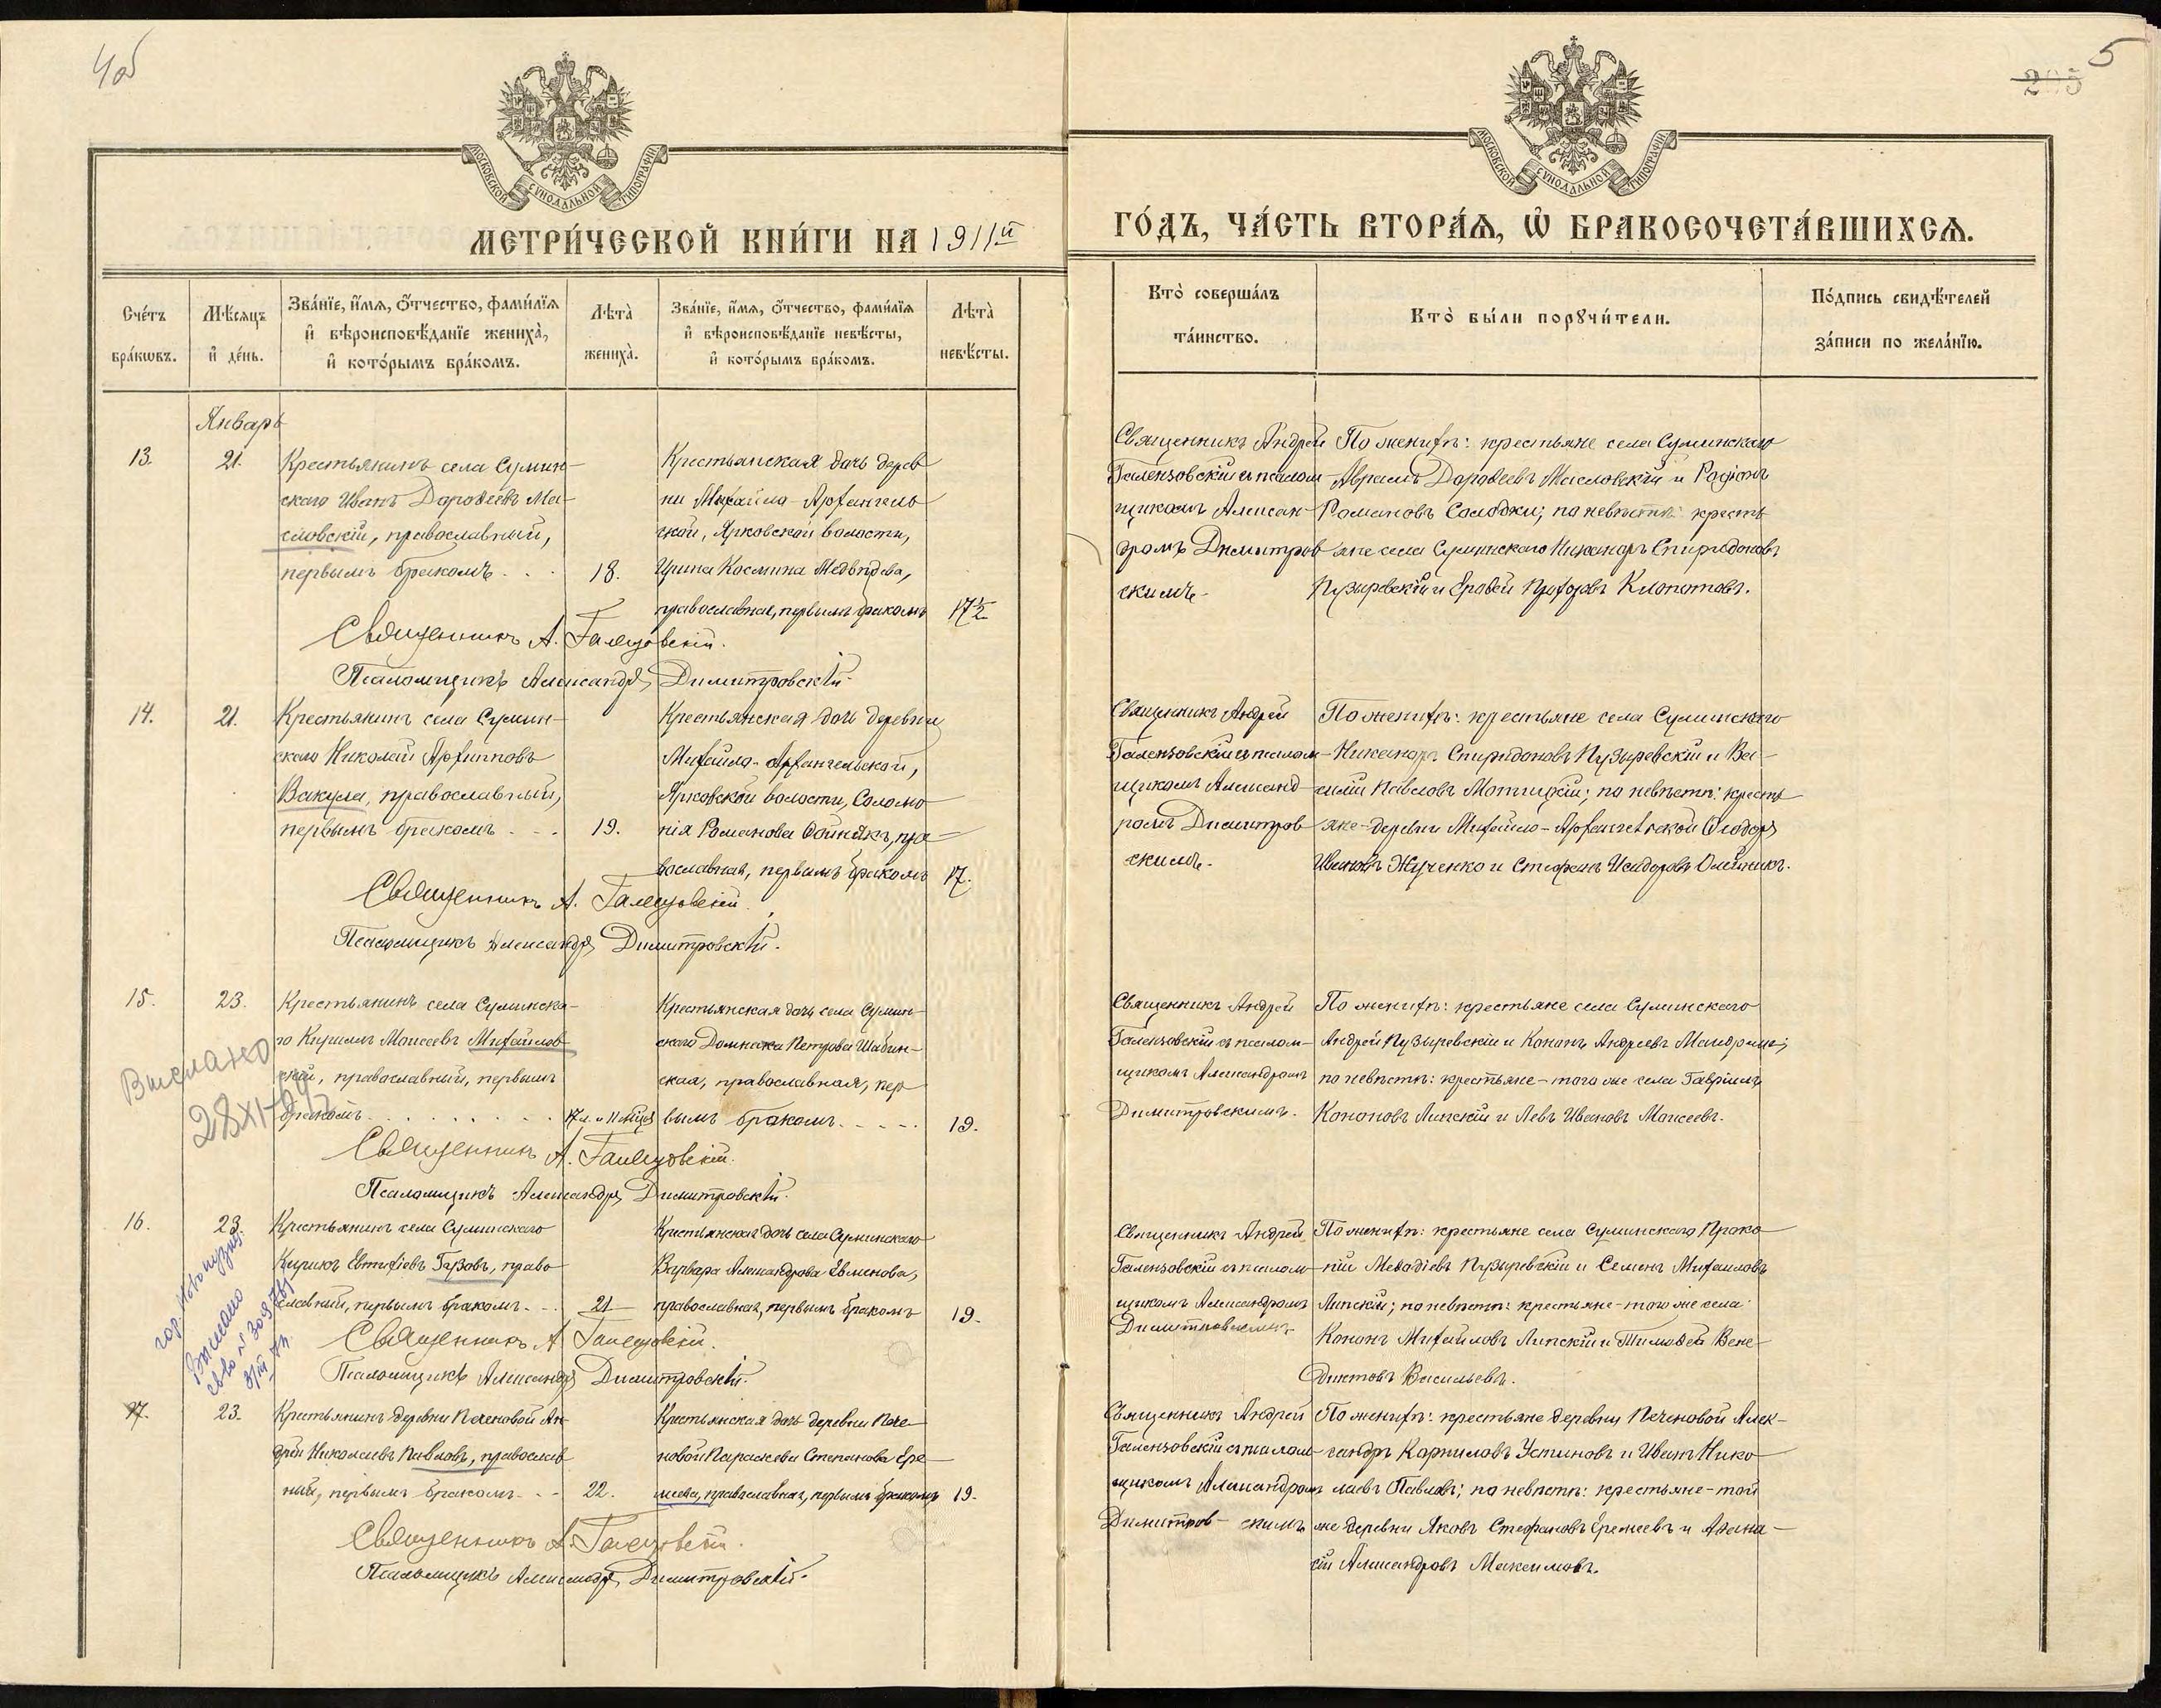 4об
МОСКОВСКОЙ СѴНОДАЛЬНОЙ ТИПОГРАФІИ
МЕТРИ́ЧЕСКОЙ КНИ́ГИ НА 1911й
Сче́тъ бра́кѡвъ.
Мѣ́сяцъ и҆ де́нь.
Зва́нїе, и҆́мя, ѻ҆́тчество, фами́лїя и҆ вѣроисповѣ́данїе жениха̀, и҆ кото́рымъ бра́комъ.
Лѣта̀ жениха̀.
Зва́нїе, и҆́мя, ѻ҆́тчество, фами́лїя и҆ вѣроисповѣ́данїе невѣ́сты, и҆ кото́рымъ бра́комъ.
Лѣта̀ невѣ́сты.
Январь
13.
21.
Крестьянинъ села Сумин-
скаго Иванъ Дороѳеевъ Ма-
словскій, православный,
первымъ бракомъ . . .
18.
Крестьянская дочь дерев
ни Михаило-Архангель
ской, Ярковской волости,
Ирина Космина Медвѣдева,
православная, первымъ бракомъ
17½
Священникъ А. Галензовскій.
Псаломщикъ Александръ Димитровскій.
14.
21.
Крестьянинъ села Сумин-
скаго Николай Архипповъ
Вакула, православный,
первымъ бракомъ . . .
19.
Крестьянская дочь деревни
Михаило-Архангельской,
Ярковской волости, Соломо
нія Романова Олійникъ, пра-
вославная, первымъ бракомъ
17.
Священникъ А. Галензовскій.
Псаломщикъ Александръ Димитровскій.
15.
23.
Крестьянинъ села Суминска-
го Кириллъ Моисеевъ Михайлов
скій, православный, первымъ
бракомъ. . . . . . . . . .
17 л. и 11 мѣся
Крестьянская дочь села Сумин-
скаго Домника Петрова Шабин-
ская, православная, пер
вымъ бракомъ. . . . .
19.
Выслано
Священникъ А. Галензовскій.
Псаломщикъ Александръ Димитровскій.
16.
23.
Крестьянинъ села Суминскаго
Кирикъ Евтихіевъ Гузовъ, право
славный, первымъ бракомъ. . .
21
Крестьянская дочь села Суминскаго
Варвара Александрова Евменова,
православная, первымъ бракомъ
19.
Выслано
Священникъ А. Галензовскій.
Псаломщикъ Александръ Димитровскій.
17.
23.
Крестьянинъ деревни Печеновой Ан
дрей Николаевъ Павловъ, православ
ный, первымъ бракомъ . . -
22.
Крестьянская дочь деревни Пече-
новой Параскева Степанова Ере-
меева, православная, первымъ бракомъ
19.
Священникъ А. Галензовскій.
Псаломщикъ Александръ Димитровскій.
5
МОСКОВСКОЙ СѴНОДАЛЬНОЙ ТИПОГРАФІИ
ГО́ДЪ, ЧА́СТЬ ВТОРА́Я, Ѡ҆ БРАКОСОЧЕТА́ВШИХСЯ.
Кто̀ соверша́лъ та́инство.
Кто̀ бы́ли порꙋчи́тели.
По́дпись свидѣ́телей за́писи по жела́нїю.
Священникъ Андрей
Галензовскій съ псалом-
щикомъ Алексан-
дромъ Димитров
скимъ.
По женихѣ: крестьяне села Суминскаго
Аврамъ Дороѳеевъ Масловскій и Родіонъ
Романовъ Солодки; по невѣстѣ: кресть
яне села Суминскаго Никаноръ Спиридоновъ
Пузыревскій и Ероѳей Прохоровъ Клопотовъ.
Священникъ Андрей
Галензовскій съ псалом-
щикомъ Александ-
ромъ Димитров
скимъ.
По женихѣ: крестьяне села Суминскаго
Никаноръ Спиридоновъ Пузыревскій и Ва-
силій Павловъ Мотицкій; по невѣстѣ: кресть
яне деревни Михайло-Архангельской Ѳеодоръ
Ивановъ Жученко и Стефанъ Исидоровъ Олійникъ.
Священникъ Андрей
Галензовскій съ псалом-
щикомъ Александромъ
Димитровскимъ.
По женихѣ: крестьяне села Суминскаго
Андрей Пузыревскій и Кононъ Андреевъ Мандрыка;
по невѣстѣ: крестьяне-того же села Гавріилъ
Кононовъ Липскій и Левъ Ивановъ Моисеевъ.
Священникъ Андрей
Галензовскій съ псалом-
щикомъ Александромъ
Димитровскимъ
По женихѣ: крестьяне села Суминскаго Проко
пій Меѳодіевъ Пузыревскій и Семенъ Михаиловъ
Липскій; по невѣстѣ: крестьяне-того же села:
Кононъ Михаиловъ Липскій и Тимоѳей Вене-
диктовъ Васильевъ.
Священникъ Андрей
Галензовскій съ псалом-
щикомъ Александромъ
Димитров- скимъ
По женихѣ: крестьяне деревни Печеновой Алек-
сандръ Корниловъ Устиновъ и Иванъ Нико
лаевъ Павловъ; по невѣстѣ: крестьяне-той
же деревни Яковъ Стефановъ Еремеевъ и Аѳана-
сій Александровъ Максимовъ.